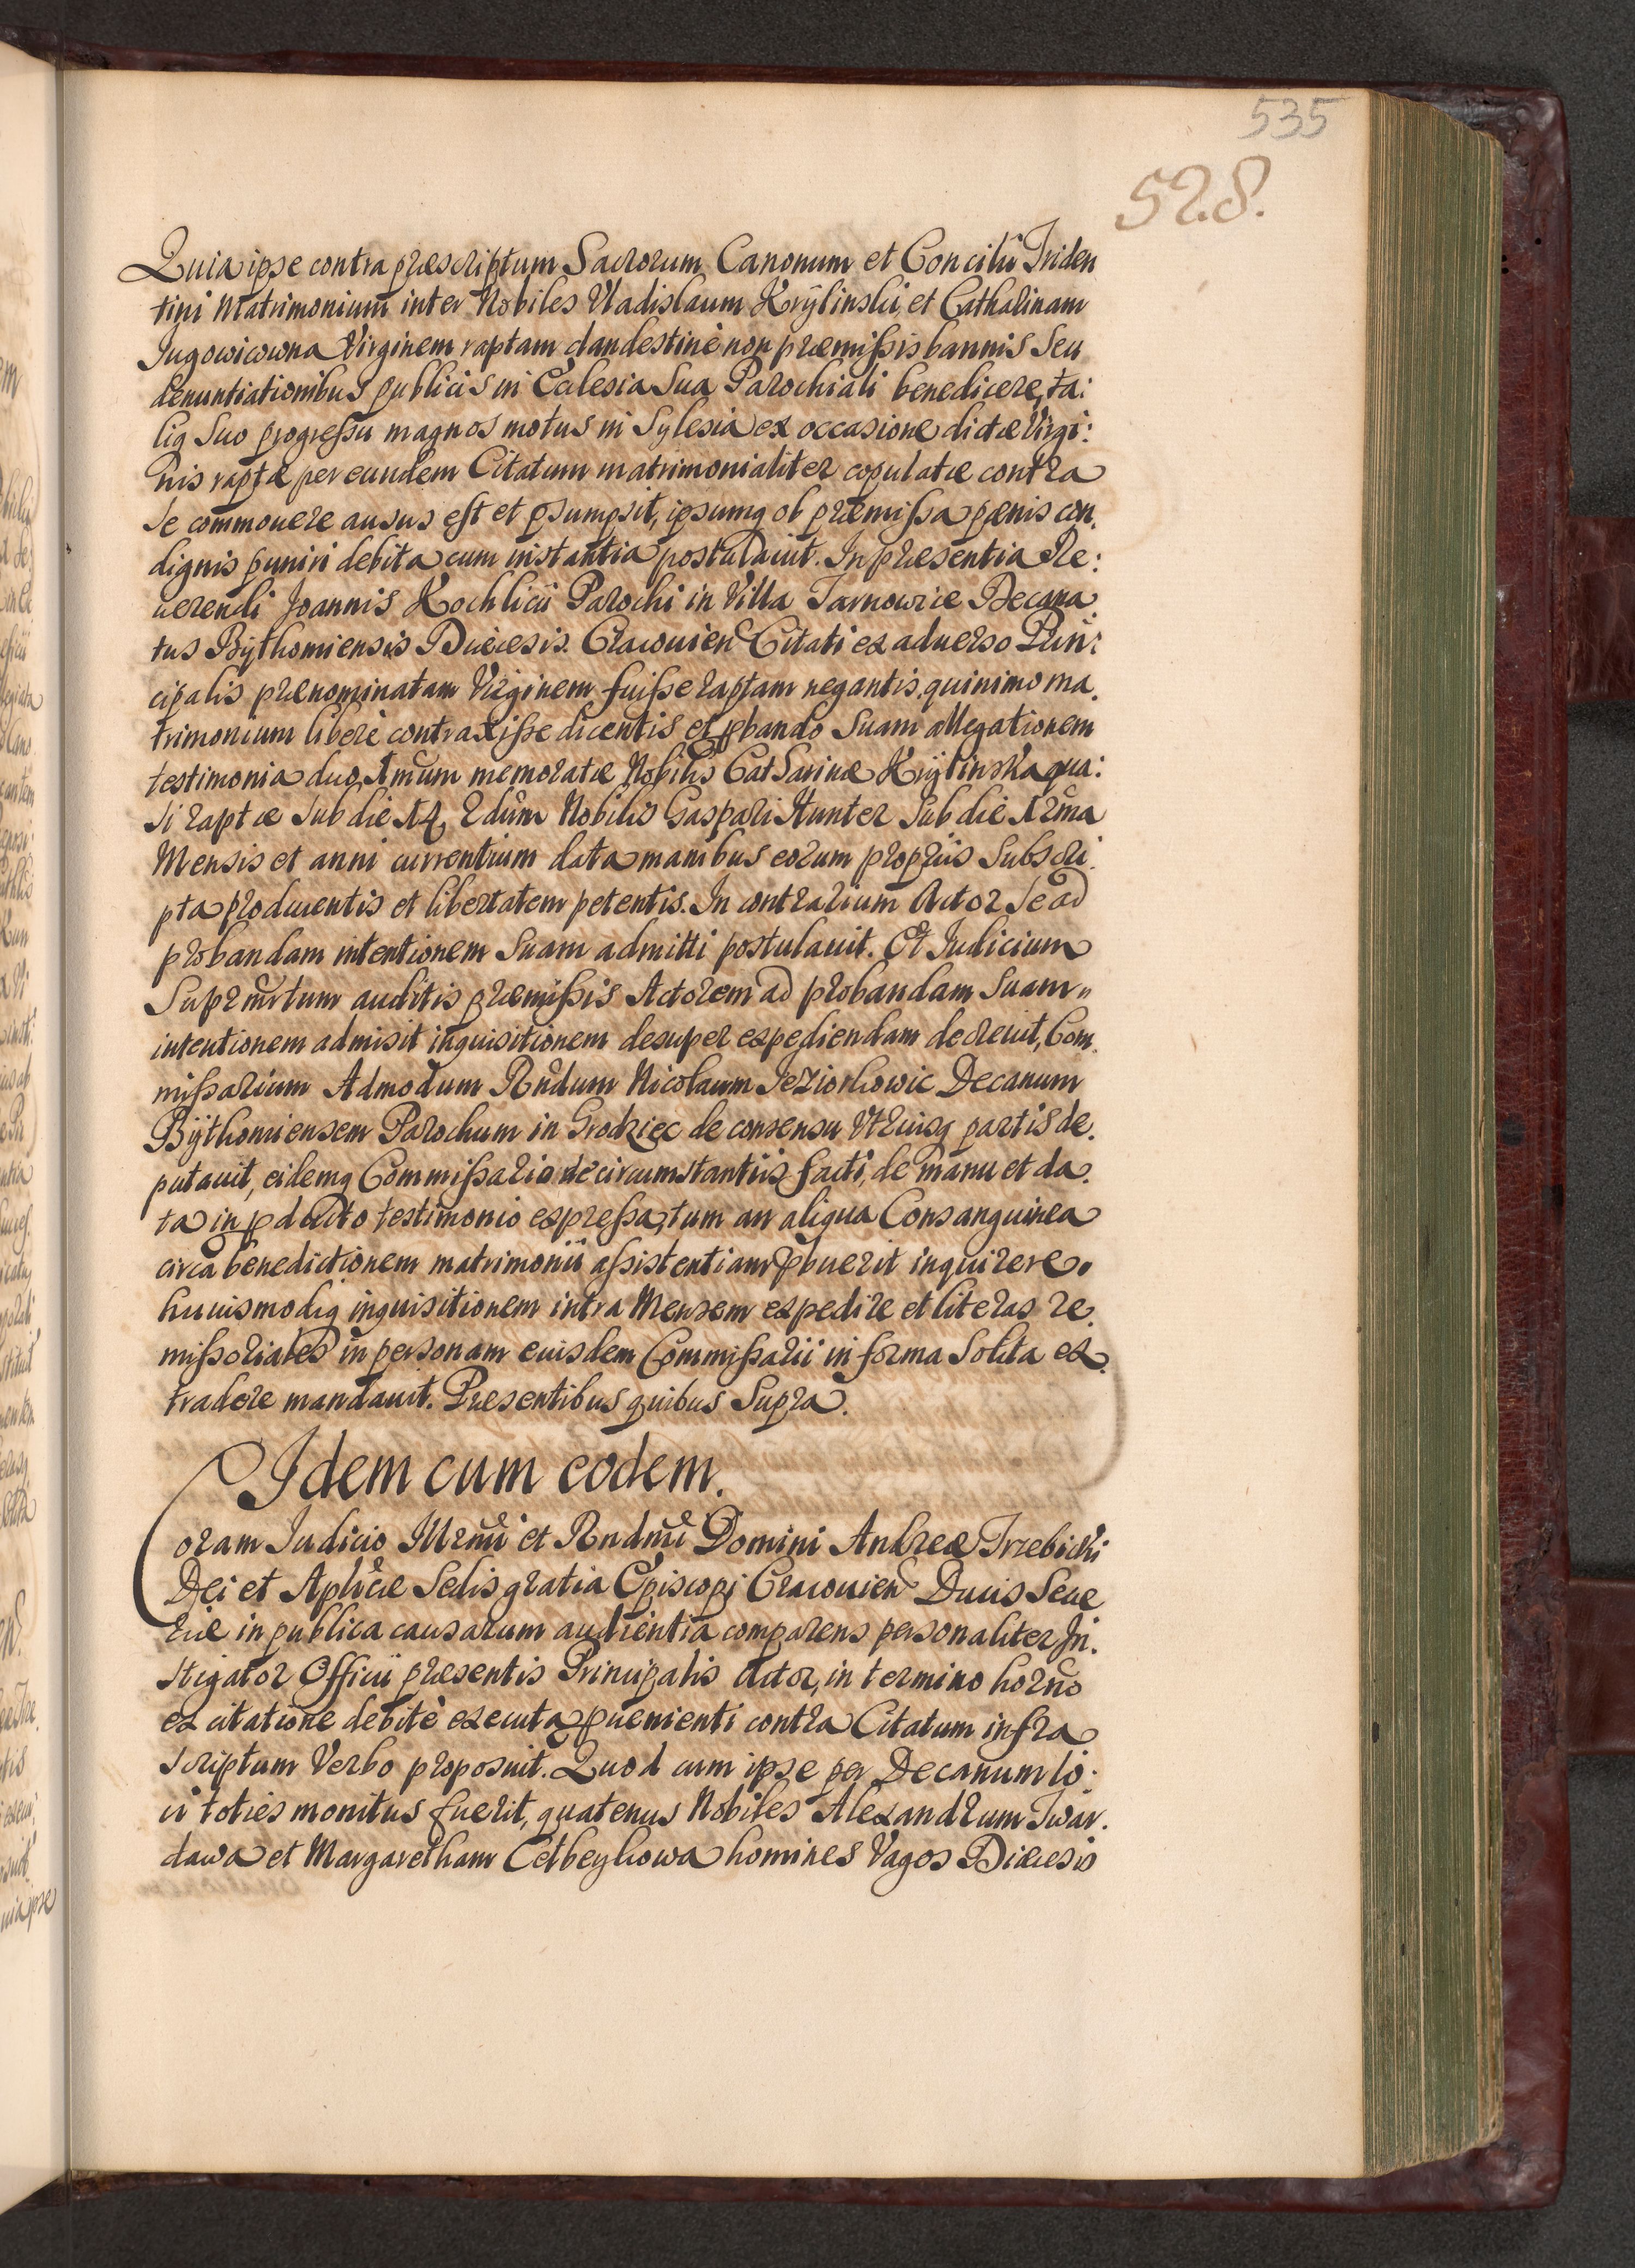 535
528.
Quia ipse contra præscriptum Sacrorum Canonum et Concilii Triden
tini Matrimonium inter Nobiles Vladislaum Krylinski, et Catharinam
Jugowicowna Virginem raptam clandestinè non præmissis bannis Seu
denuntiationibus publicis in Ecclesia Sua Parochiali benedicere, ta:
liq Suo progressu magnos motus in Sylesia ex occasione dictæ Virgi:
nis raptæ per eundem Citatum matrimonialiter copulatæ contra
Se commouere ausus est et psumpsit, ipsumq ob præmissa pænis con.
dignis puniri debita cum instantia postulauit. In præsentia Re:
uerendi Joannis Kochlicii Parochi in Villa Tarnowice Decana.
tus Bythomiensis Diæcesis. Cracouien Citati ex aduerso Prin:
cipalis prænominatam Virginem fuisse raptam negantis, quinimo ma.
trimonium liberè contraxisse dicentis et pbando Suam allegationem
testimonia duo, 1mum memoratæ Nobilis Catharinæ Krylinska qua:
si raptæ Sub die 14, 2dum Nobilis Gaspari Hunter Sub die 12ma
Mensis et anni currentium data manibus eorum proprijs Subscri.
pta producentis et libertatem petentis. In contrarium Actor Se ad
probandam intentionem Suam admitti postulauit. Et Iudicium
auditis præmissis Actorem ad probandam Suam"
intentionem admisit inquisitionem desuper expediendam decreuit, Com.
missarium Admodum Rndum Nicolaum Jeziorkowic Decanum
Bythomiensem Parochum in Grodziec de consensu Vtriusq partis de.
putauit, eidemq Commissario de circumstantiis facti, de manu et da.
ta in pducto testimonio expressa, tum an aliqua Consanguinea
circa benedictionem matrimonii assistentiam pbuerit inquirere.
huiusmodiq inquisitionem intra Mensem expedire et literas re.
missoriales in personam eiusdem Commissarii in forma Solita ex.
tradere mandauit. Præsentibus quibus Supra.
Idem cum eodem.
Coram Iudicio Illrmi et Rndmi Domini Andreæ Trzebicki
Dei et Aplicæ Sedis gratia Episcopi Cracouien Ducis Seue
riæ in publica causarum audientia comparens personaliter In.
stigator Officii præsentis Principalis Actor, in termino horno
ex citatione debitè executa puenienti contra Citatum infra
scriptum Verbo proposuit. Quod cum ipse per Decanum lo:
ci toties monitus fuerit, quatenus Nobiles Alexandrum Twar.
dawa et Margaretham Celbeykowa homines Vagos Diæcesis